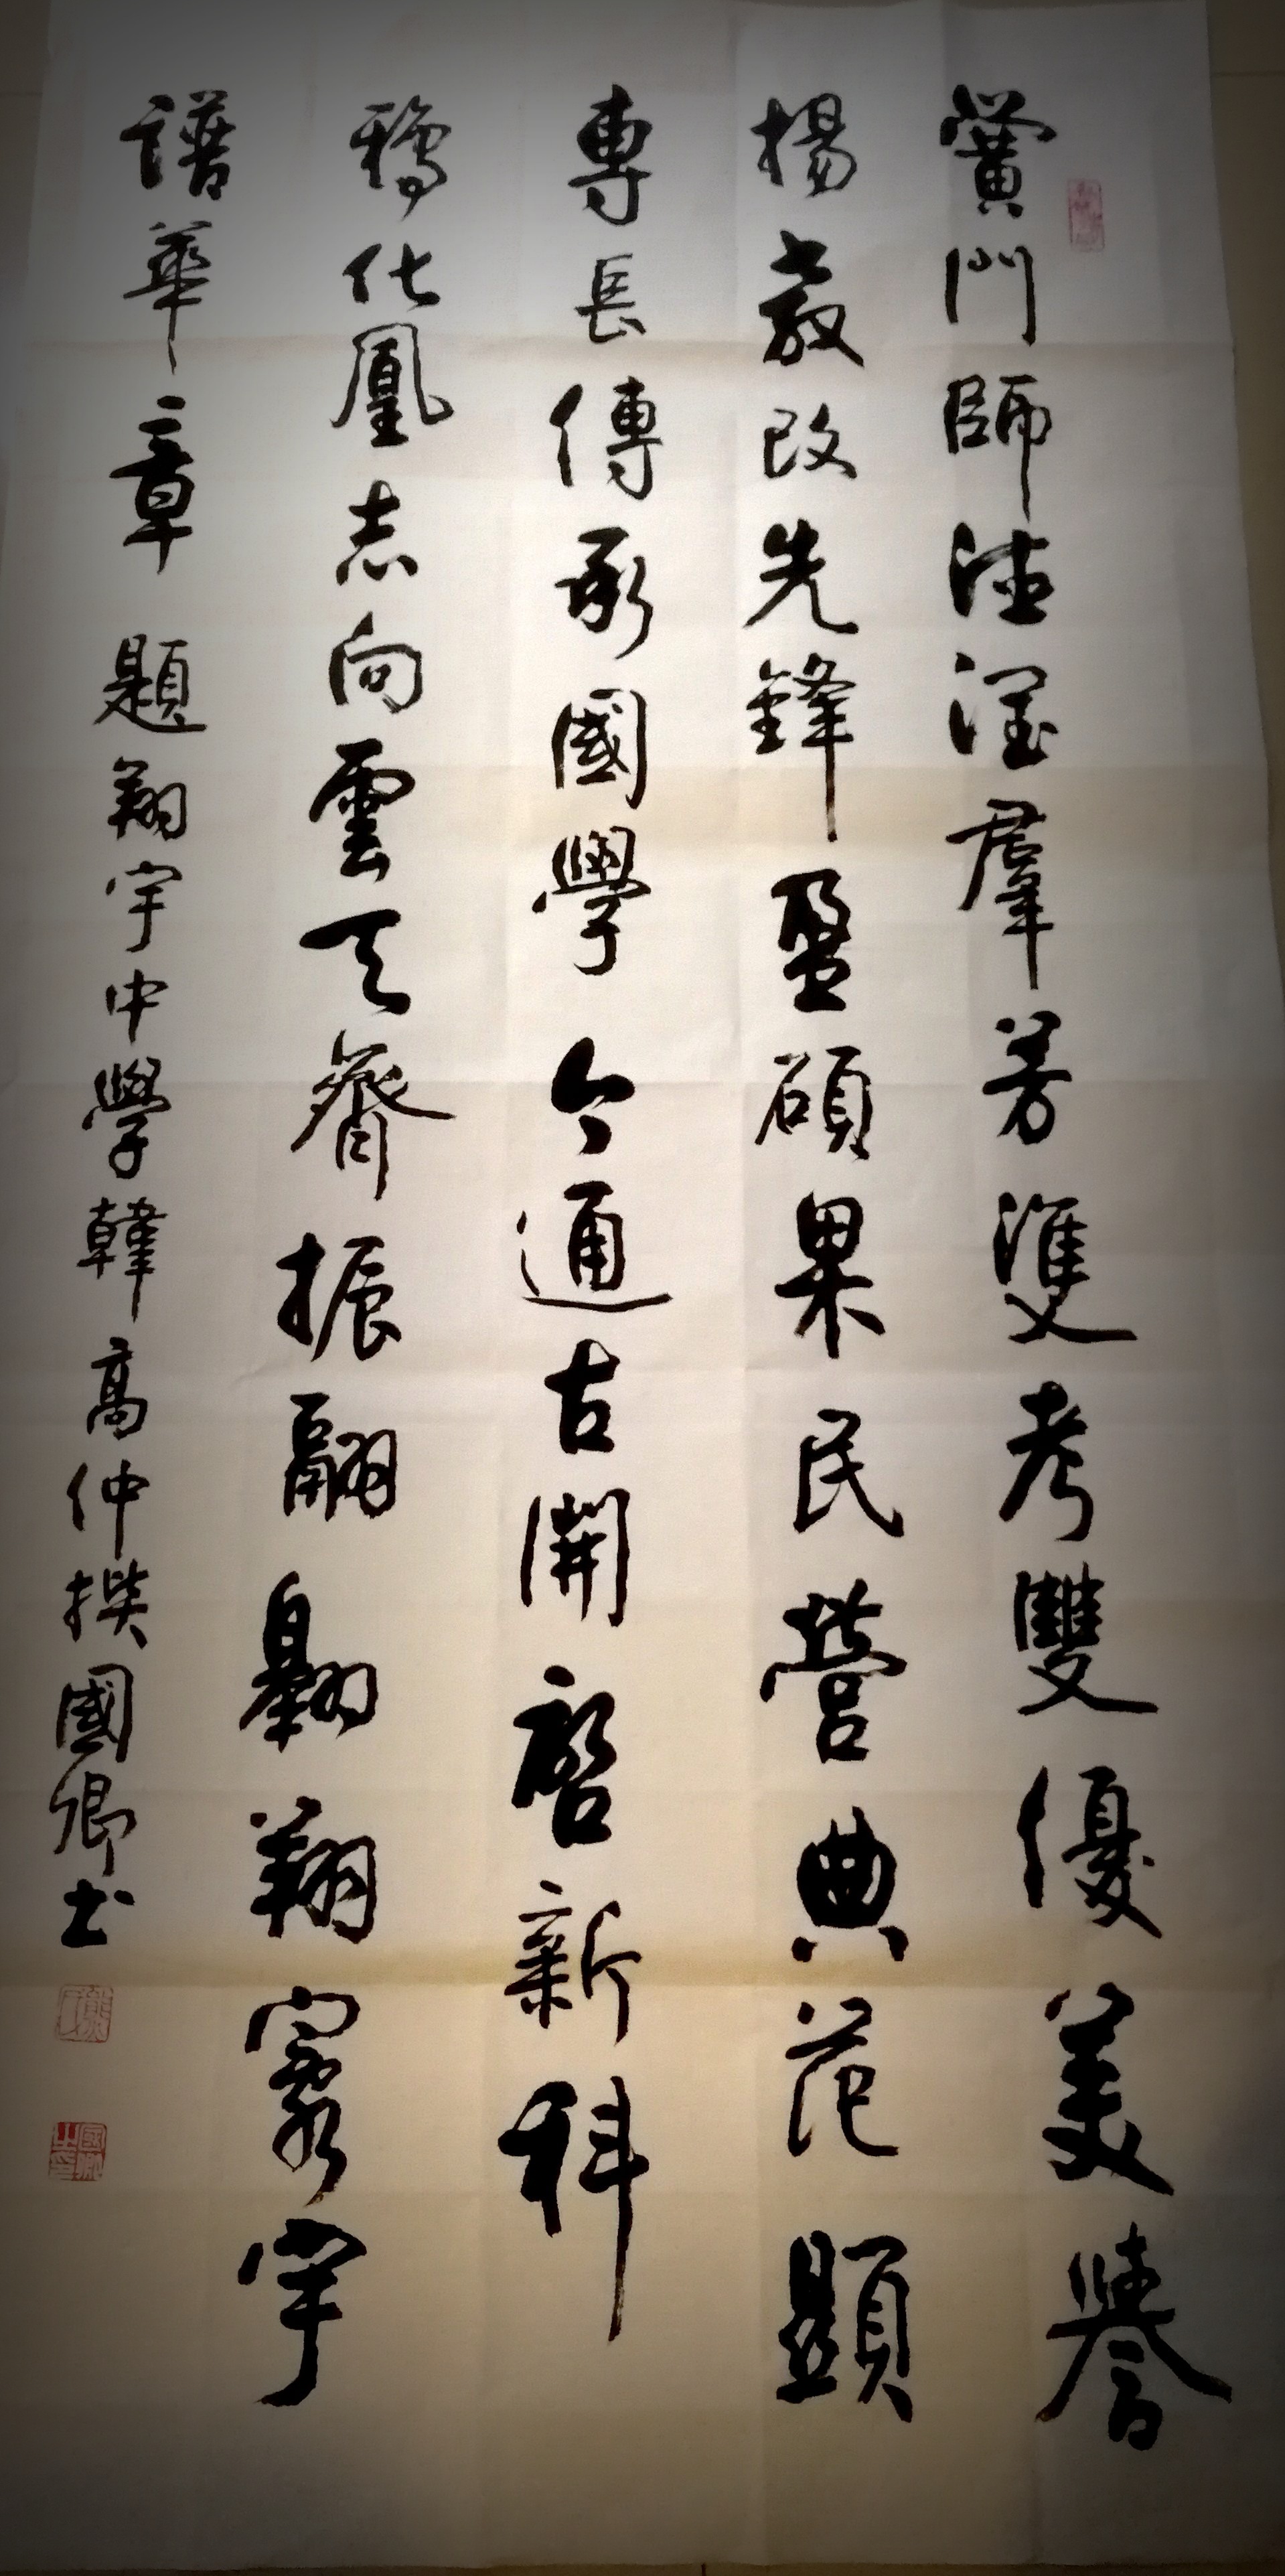 黌門師德澤羣芳雙考雙優美譽
揚教改先鋒盈碩果民營典范顯
專長傳承國學今通古開啓新科
鴉化凰志向雲天齊振翮翱翔寰宇
譜華章 題翔宇中學韓高仲撰國卿书